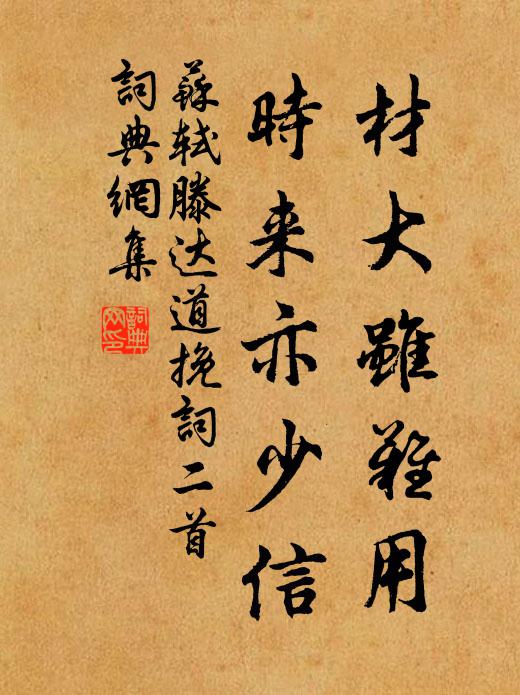 材大雖難用
時来亦少信
蘇軾滕达道挽詞二首
詞典網集
詞典
网印